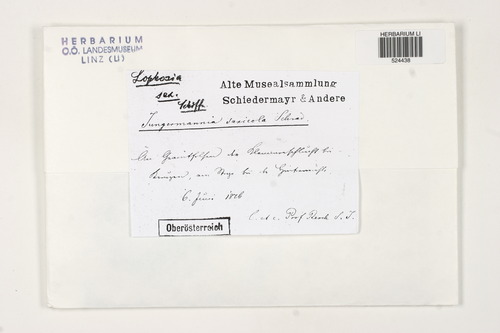 HERBARIUM
O.Ö. LANDESMUSEUM
LINZ (LI)
HERBARIUM LI
524438
Lophozia
sax.
Schffn.
Alte Musealsammlung
Schiedermayr & Andere
Jungermannia saxicola Schrad.
An Granitfelsen der Klammerschlucht bei
am Wege bei der
6. Juni
Prof. S. J.
Oberösterreich